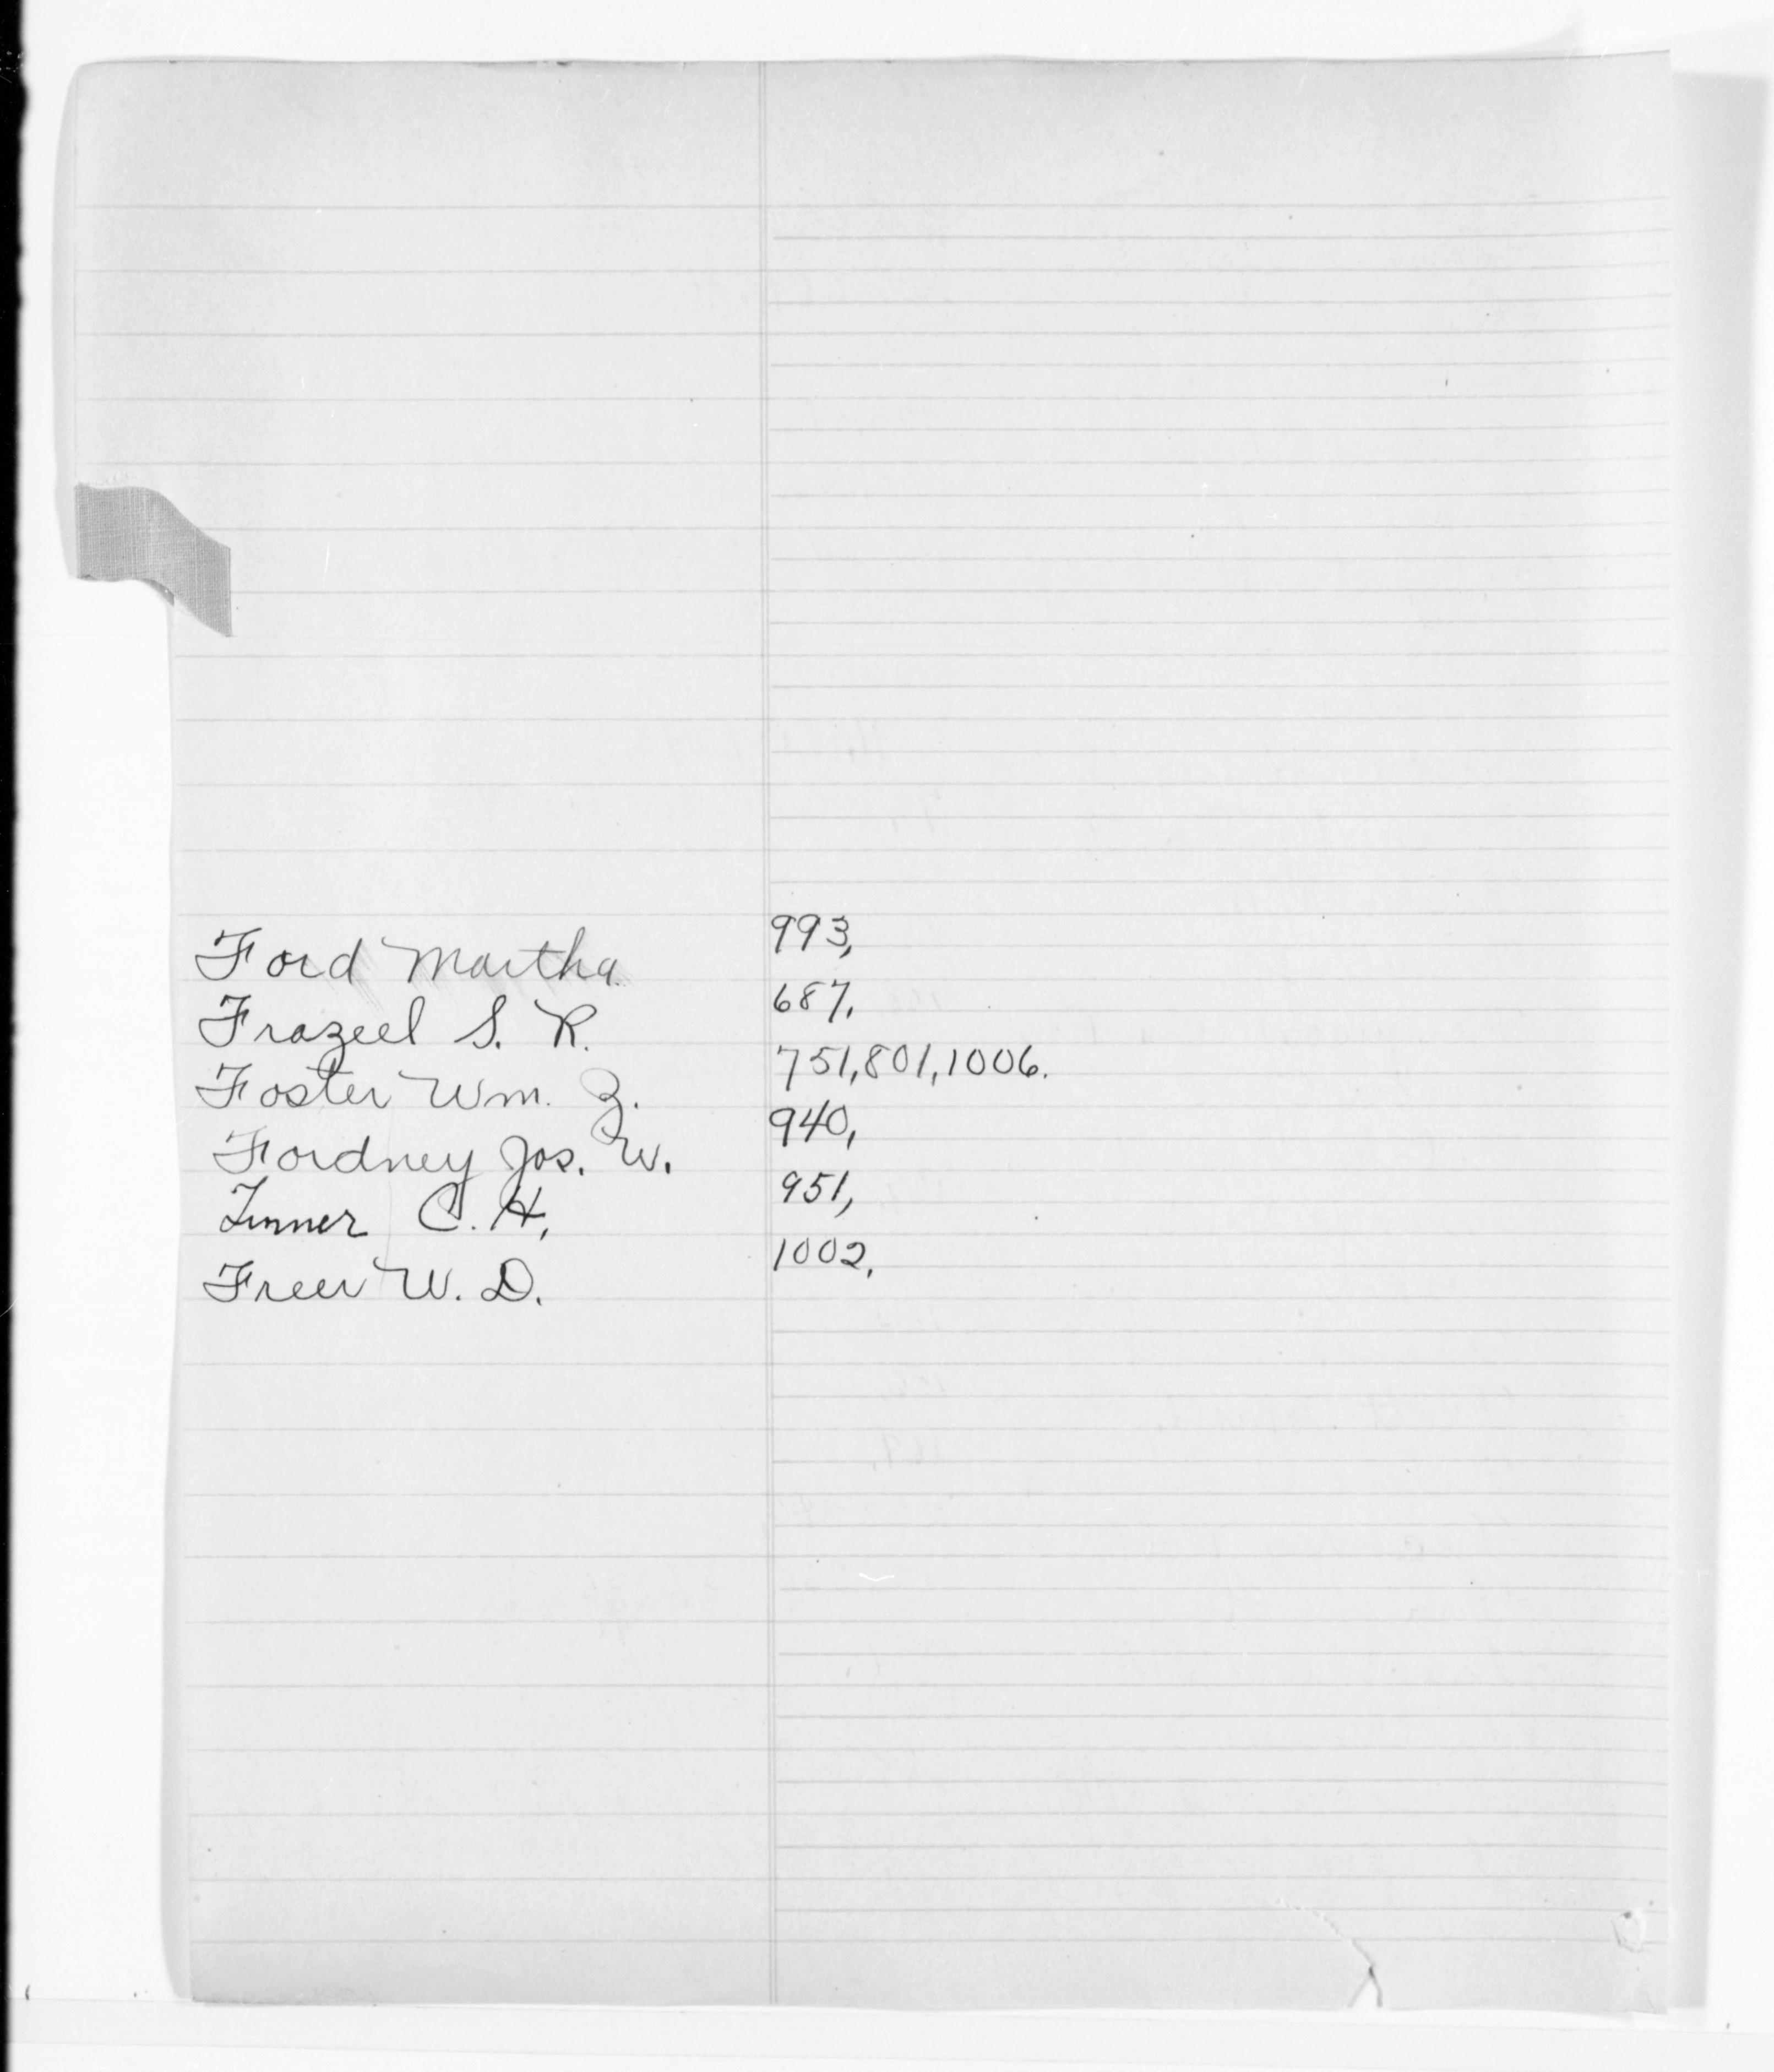 Ford Martha. 993,
Frazeel S. R. 687,
Foster Wm. Z. 751,801,1006.
Fordney Jos. W. 940,
C. H, 951,
Freer W. D. 1002,